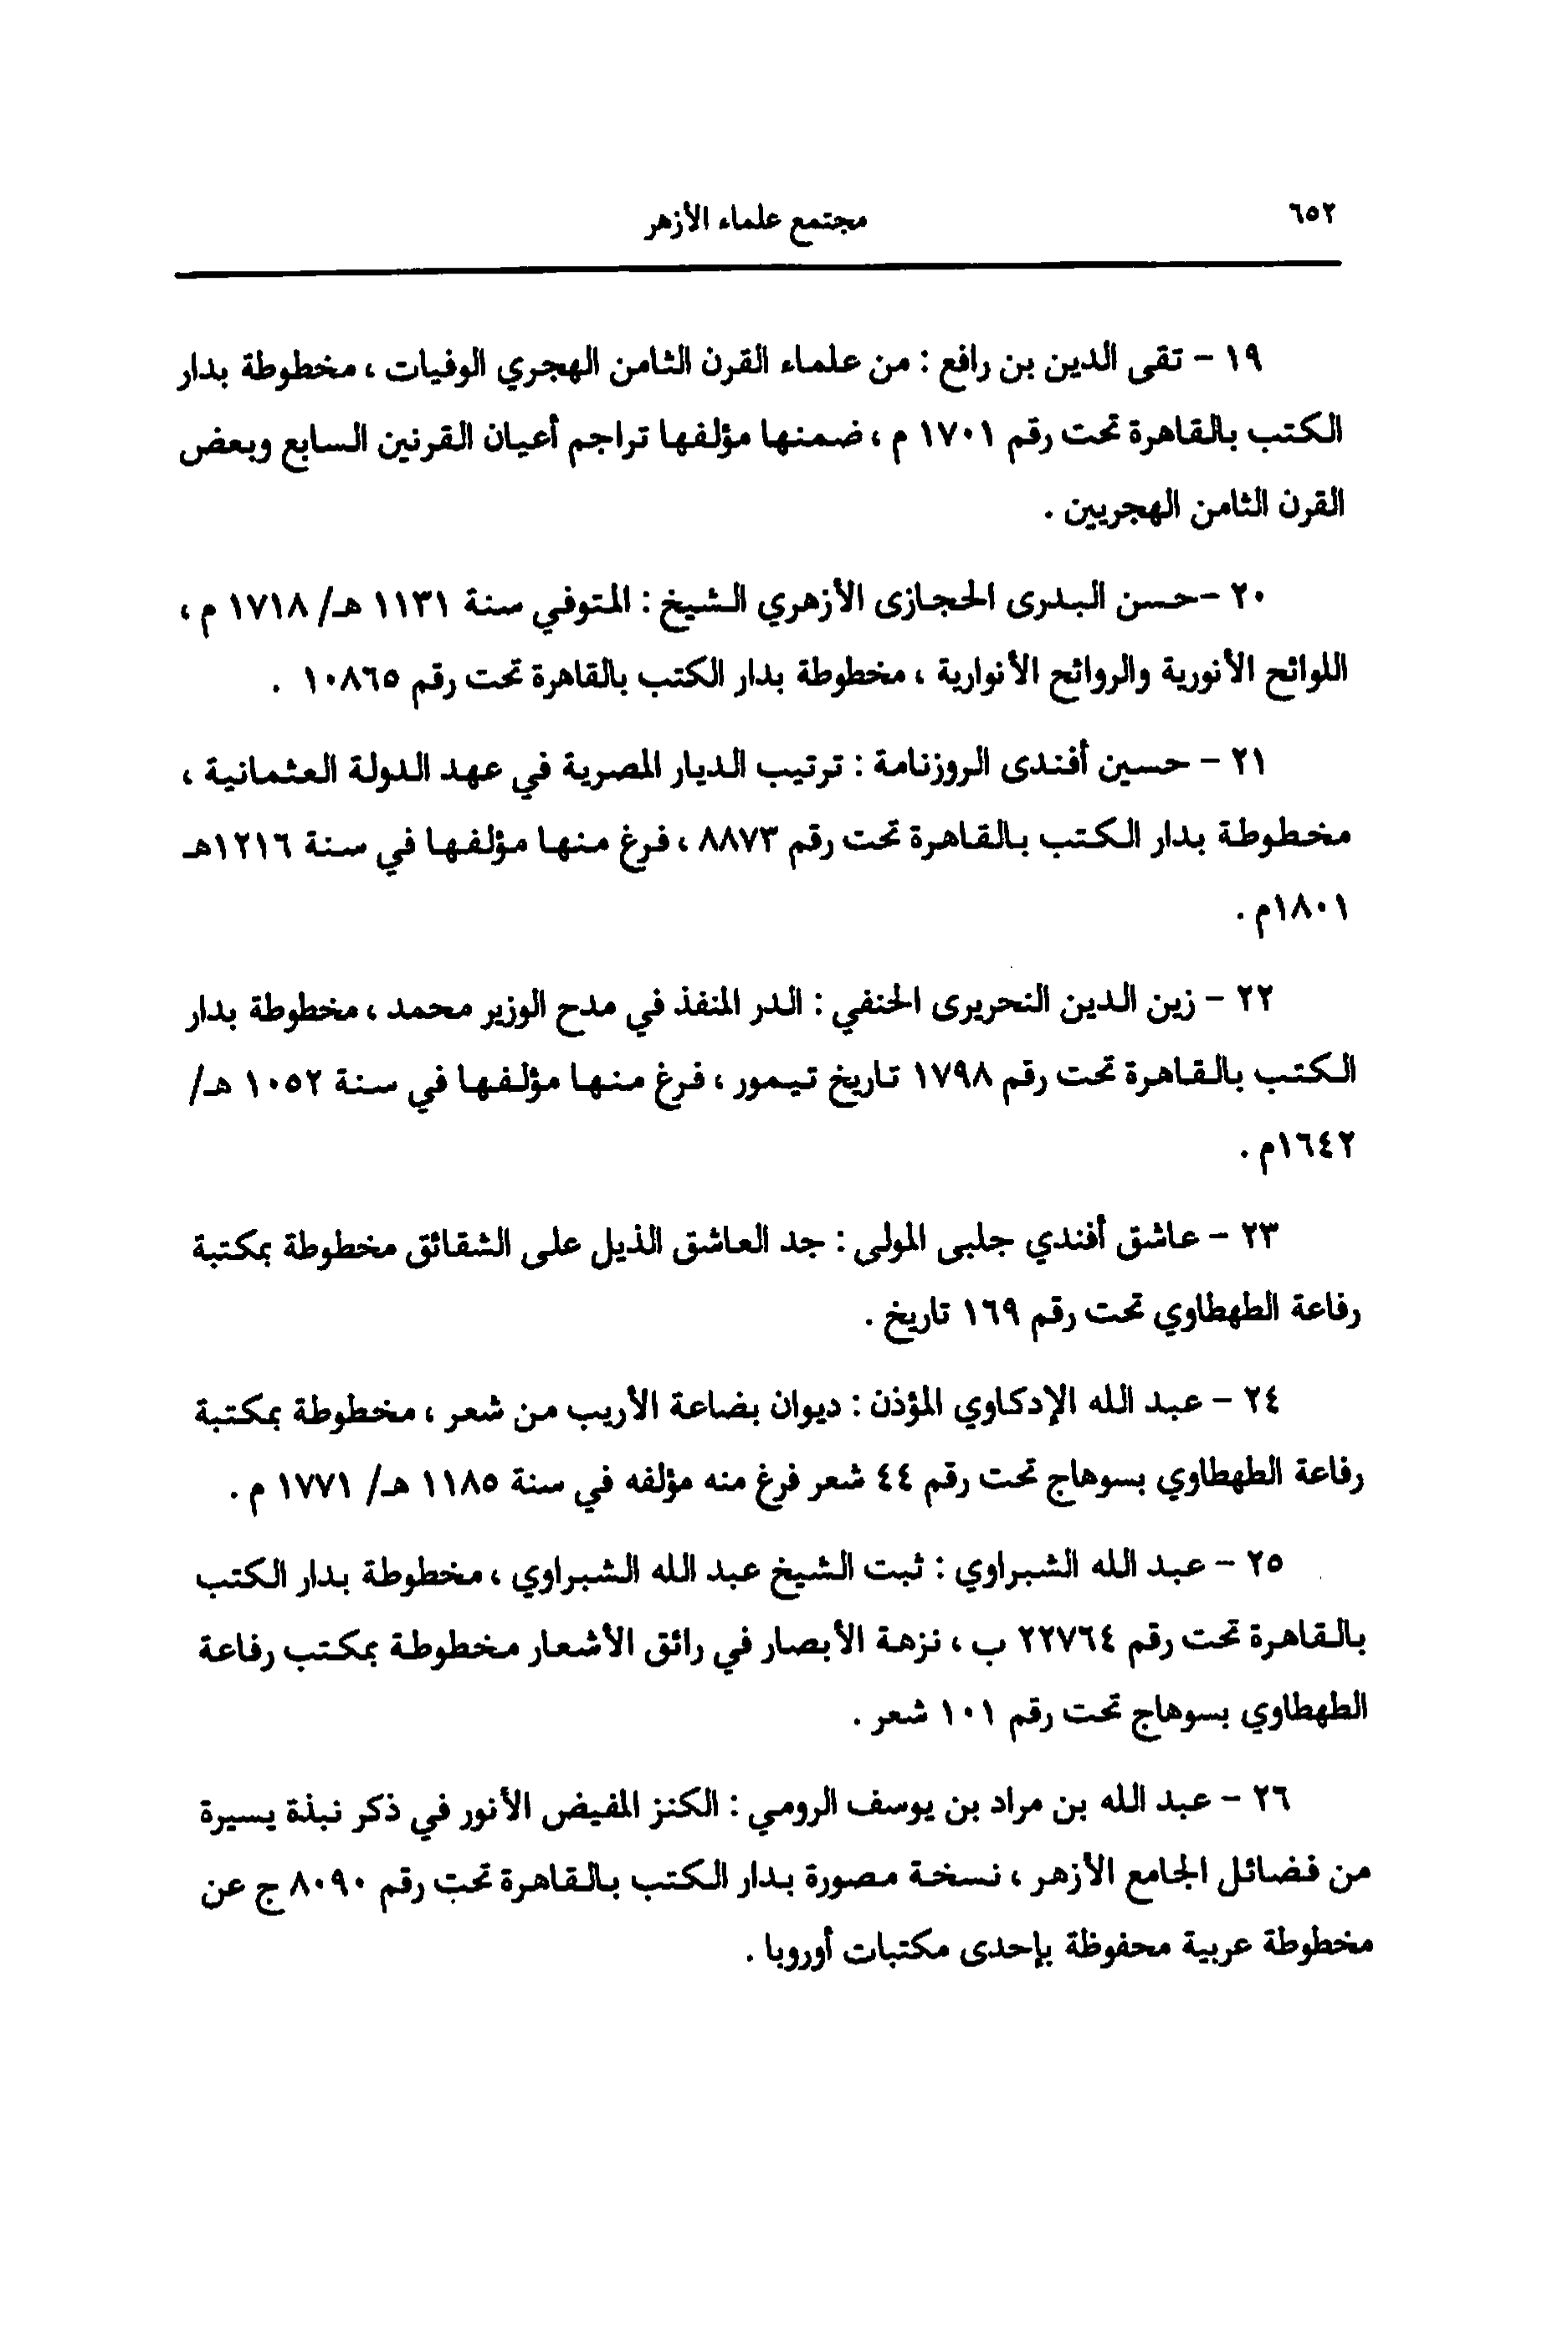 ٦٥٢
مجتمع علماء الأزهر
١٩ - تقى الدين بن رافع : من علماء القرن الثامن الهجري الوفيات ، مخطوطة بدار
الكتب بالقاهرة تحت رقم ١٧٠١ م ، ضمنها مؤلفها تراجم أعيان القرنين السابع وبعض
القرن الثامن الهجريين .
٢٠ -حسن البدرى الحجازى الأزهري الشيخ : المتوفي سنة ١١٣١ هـ/ ١٧١٨ م ،
اللوائح الأنورية والروائح الأنوارية ، مخطوطة بدار الكتب بالقاهرة تحت رقم ١٠٨٦٥ .
٢١ - حسين أفندى الروزنامة : ترتيب الديار المصرية في عهد الدولة العثمانية ،
مخطوطة بدار الكتب بالقاهرة تحت رقم ٨٨٧٣ ، فرغ منها مؤلفها في سنة ١٢١٦هـ
١٨٠١م .
٢٢ - زين الدين النحريرى الحنفي : الدر المنفذ في مدح الوزير محمد ، مخطوطة بدار
الكتب بالقاهرة تحت رقم ١٧٩٨ تاريخ تيمور ، فرغ منها مؤلفها في سنة ١٠٥٢ هـ/
١٦٤٢م .
٢٣ - عاشق أفندي جلبى المولى : جد العاشق الذيل على الشقائق مخطوطة بمكتبة
رفاعة الطهطاوي تحت رقم ١٦٩ تاريخ .
٢٤ - عبد الله الإدكاوي المؤذن : ديوان بضاعة الأريب من شعر ، مخطوطة بمكتبة
رفاعة الطهطاوي بسوهاج تحت رقم ٤٤ شعر فرغ منه مؤلفه في سنة ١١٨٥ هـ/ ١٧٧١ م .
٢٥ - عبد الله الشبراوي : ثبت الشيخ عبد الله الشبراوي ، مخطوطة بدار الكتب
بالقاهرة تحت رقم ٢٢٧٦٤ ب ، نزهة الأبصار في رائق الأشعار مخطوطة بمكتب رفاعة
الطهطاوي بسوهاج تحت رقم ١٠١ شعر .
٢٦ - عبد الله بن مراد بن يوسف الرومي : الكنز المفيض الأنور في ذكر نبذة يسيرة
من فضائل الجامع الأزهر ، نسخة مصورة بدار الكتب بالقاهرة تحت رقم ٨٠٩٠ ج عن
مخطوطة عربية محفوظة بإحدى مكتبات أوروبا .